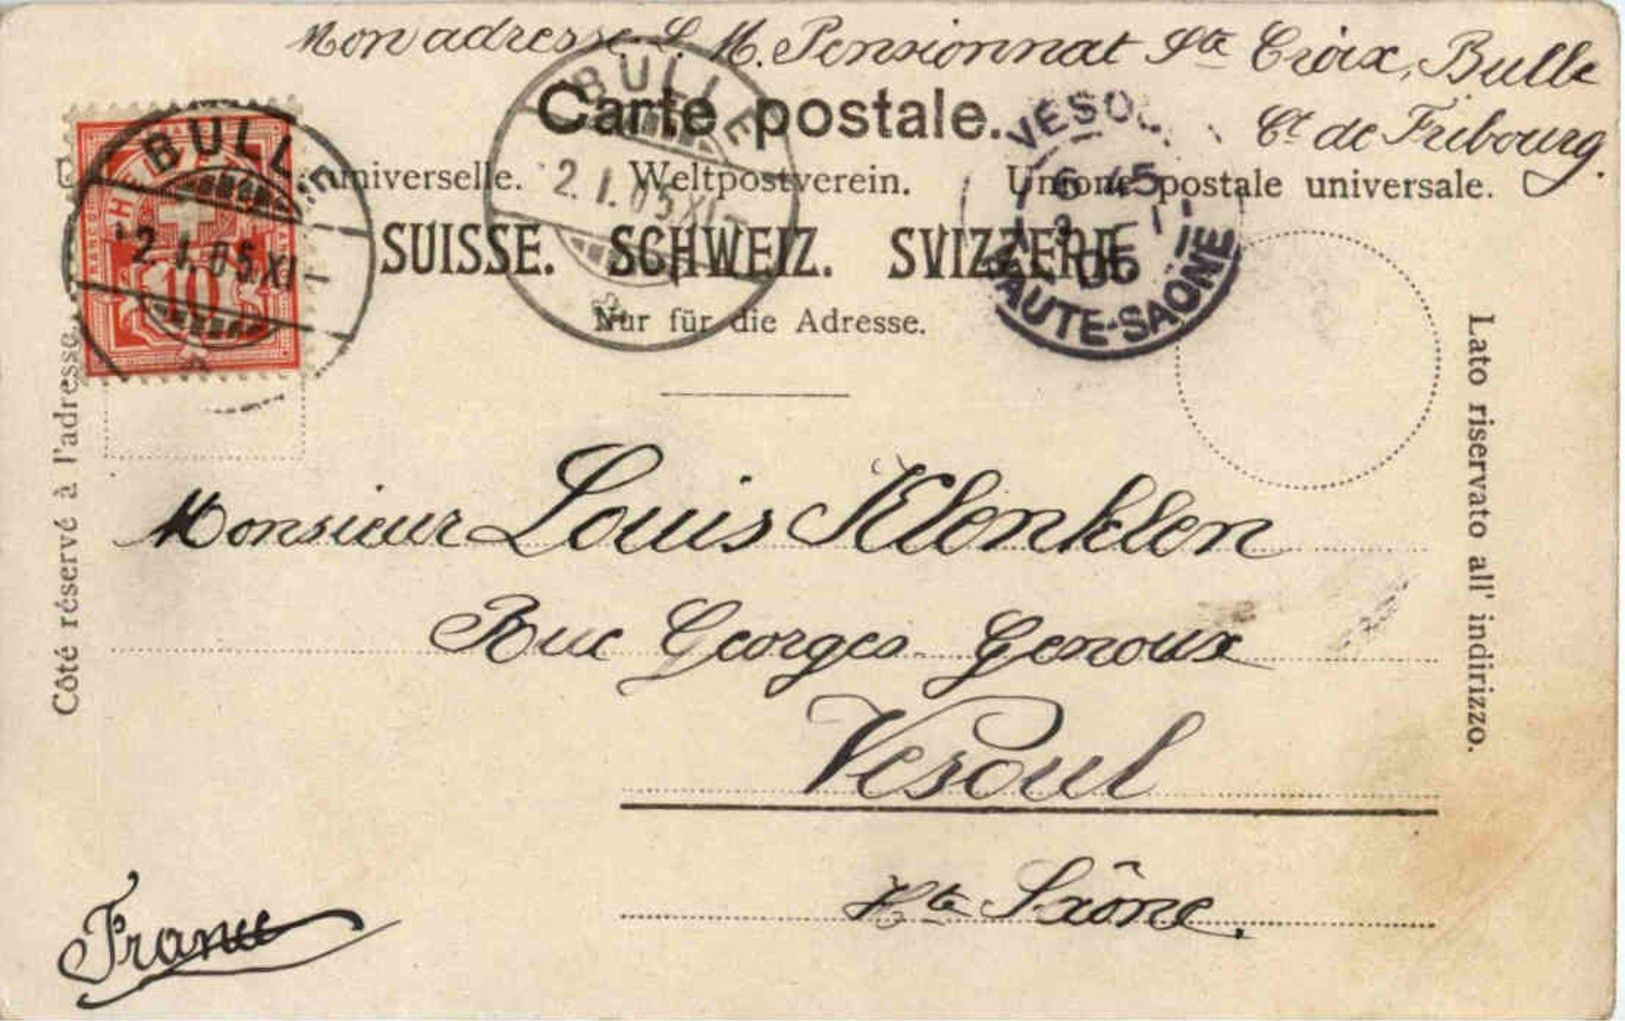 Mon adresse: L. M. Pensionnat Ste Croix, Bulle
Ct de Fribourg.
Carte postale.
universelle. Weltpostverein. Unione postale universale.
SUISSE. SCHWEIZ. SVIZZERA.
Nur für die Adresse.
BULLE
2.1.05 XI
10
BULLE
2.1.05 XI
VESOUL
6 45
3
05
HAUTE-SAÔNE
Côté réservé à l'adresse.
Lato riservato all' indirizzo.
Monsieur Louis Klenklen
Rue Georges Genoux
Vesoul
Hte Saône.
France